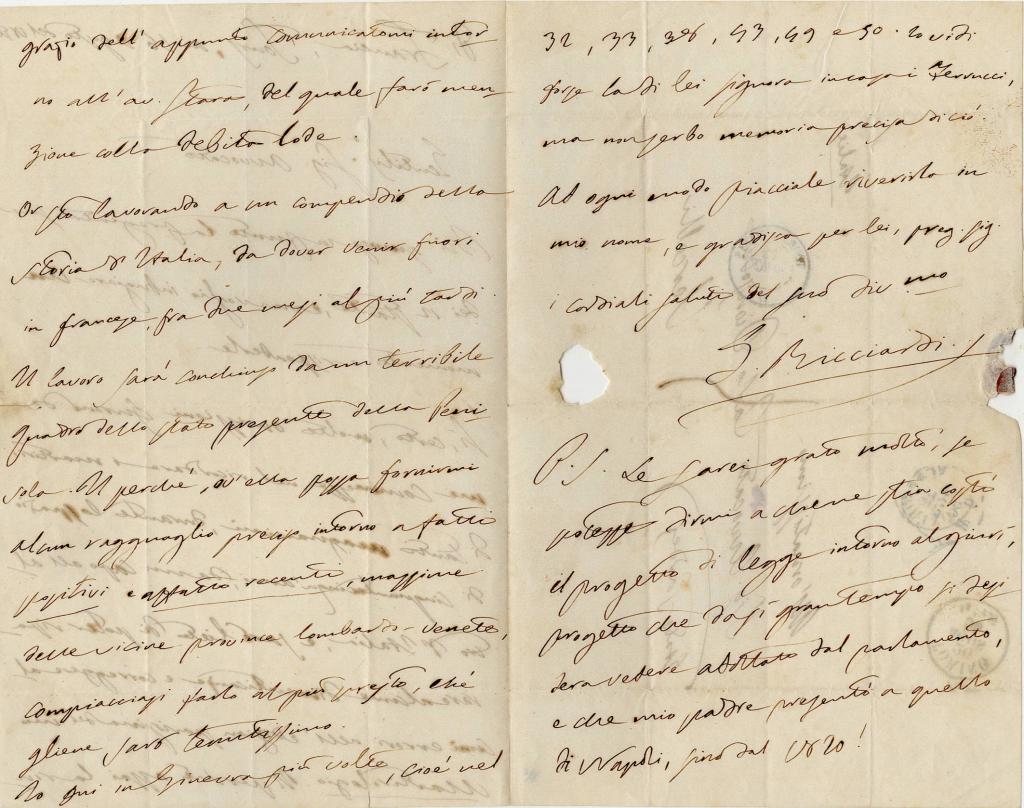 grazio dell' appunto comunicatomi intor
no all' av. Stara, del quale farò men
zione colla debita lode.
Or sto lavorando a un compendio della
storia d'Italia, da dover venir fuori
in francese, fra due mesi al più tardi.
Il lavoro sarà conchiuso da un terribile
quadro dello stato presente della Peni
sola. Il perché, ov'ella possa fornirmi
alcun ragguaglio preciso intorno a fatti
positivi e affatto recenti, massime
delle vicine province lombardo-venete,
compiacciasi farlo al più presto, ché
gliene sarò tenutissimo.
Io fui in Ginevra più volte, cioè nel
32, 33, 36, 43, 49 e 50. Io vidi
forse la di lei signora in casa i Ferrucci,
ma non serbo memoria precisa di ciò.
Ad ogni modo piacciale riverirla in
mio nome, e gradisca per lei, preg. sig.
i cordiali saluti del suo div mo
G. Ricciardi.
P.S. Le sarei grato molto, se
potesse dirmi a che ne stia costì
il progetto di legge intorno al giurì,
progetto che da sì gran tempo si desi
dera vedere adottato dal parlamento,
e che mio padre presentò a quello
di Napoli, sino dal 1820!